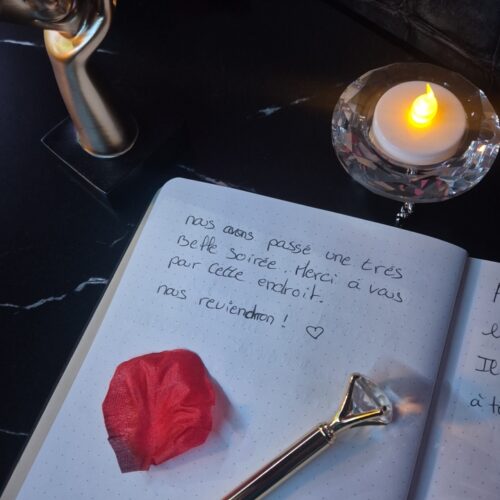 nous avons passé une très
Belle soirée. Merci à vous
pour cette endroit.
nous reviendron ! ♡
Il
à